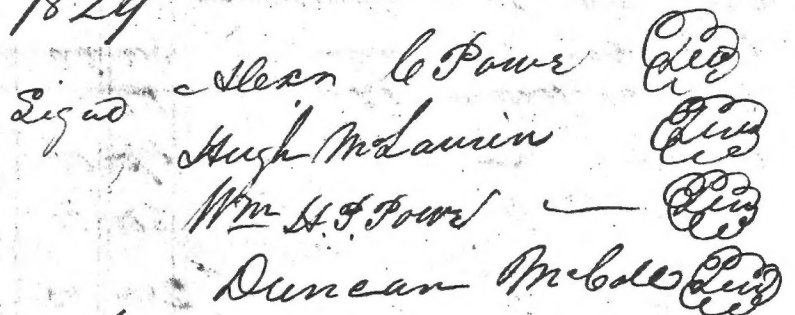 1824
Signed Alexr C Powe Seal
Hugh McLaurin Seal
Wm H. P. Powe — Seal
Duncan McColl Seal